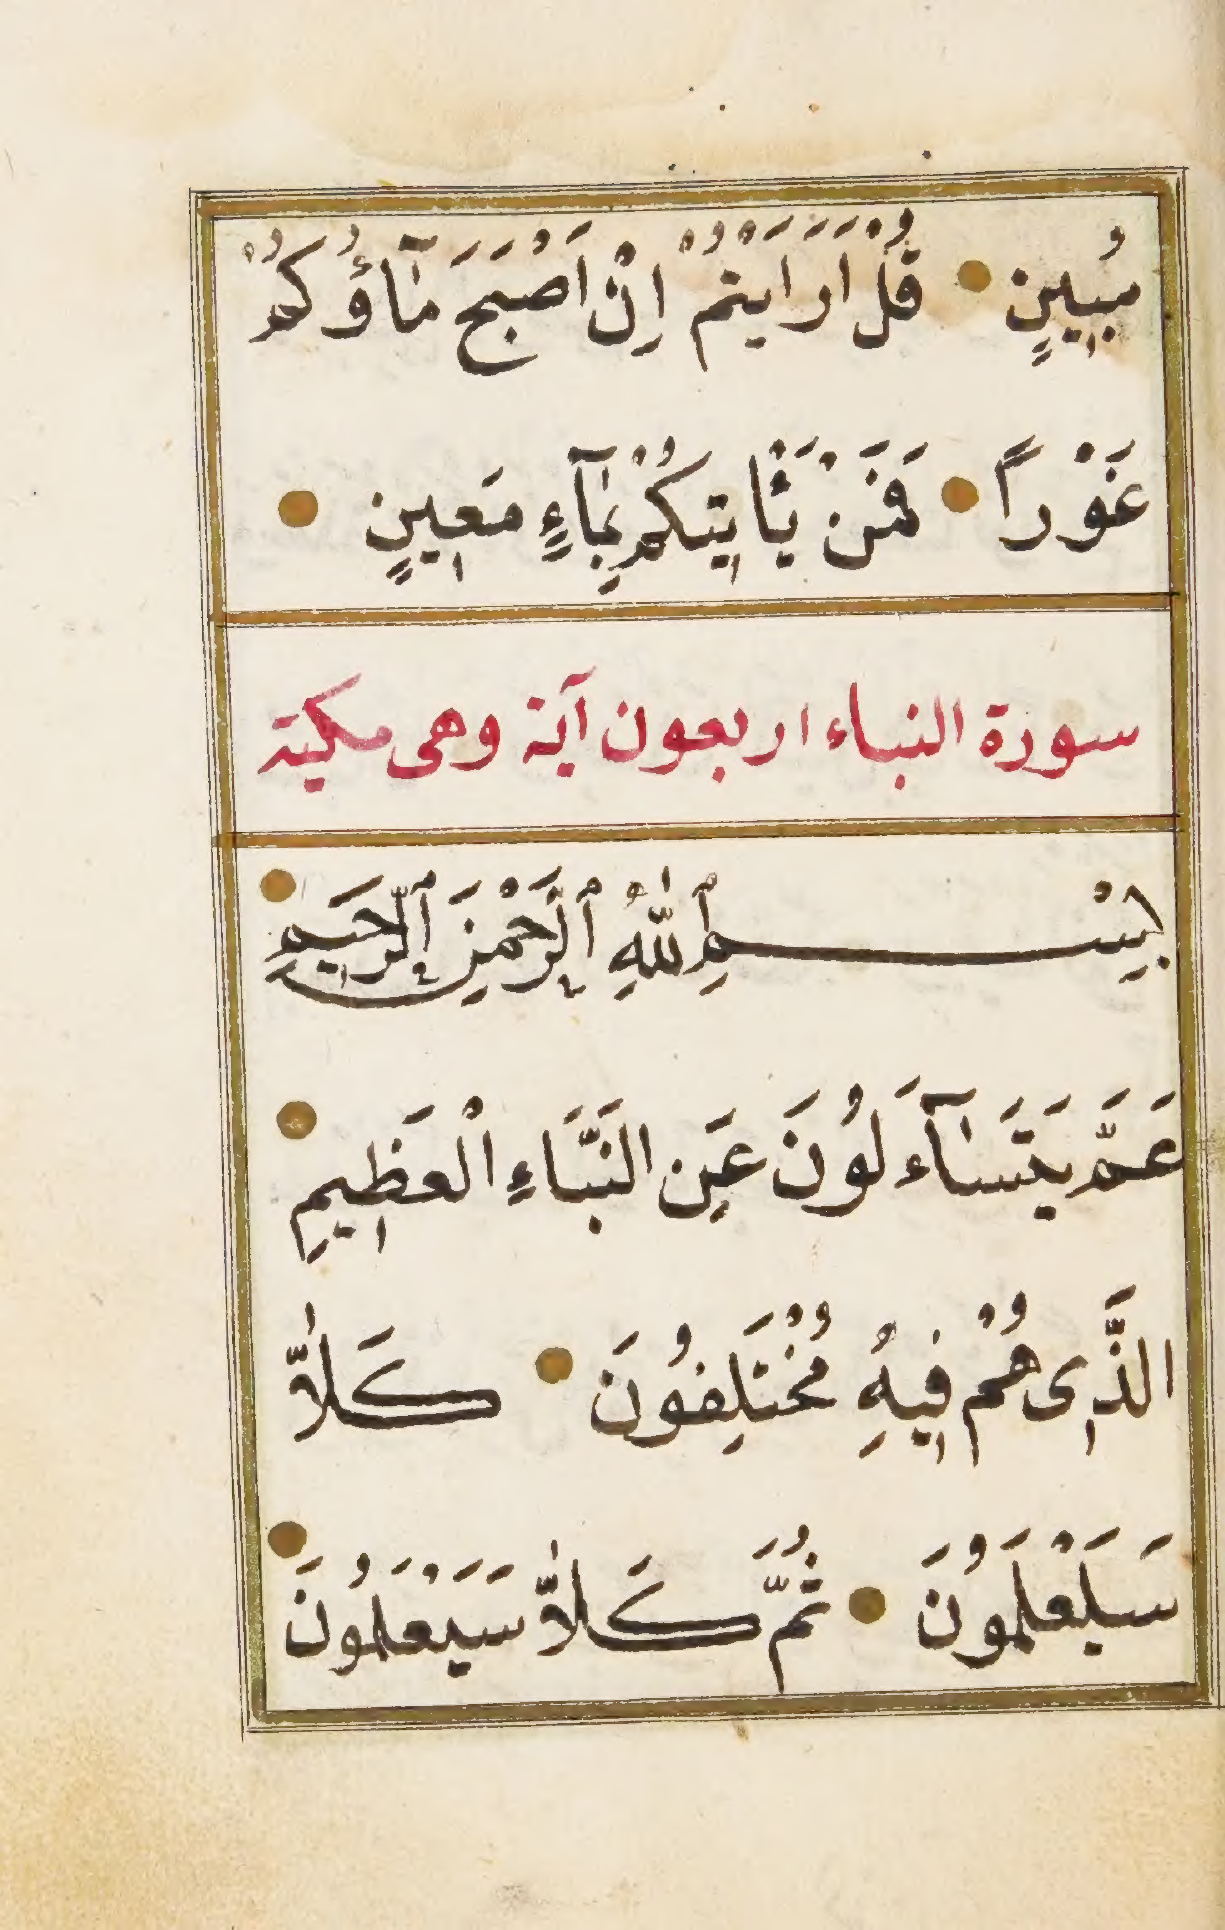 مُبِينٍ قُلْ اَرَاَيْتُمْ اِنْ اَصْبَحَ مَآؤُكُمْ
غَوْراً فَمَنْ يَأْتِيكُمْ بِمَآءٍ مَعِينٍ
سورة النباء اربعون آية وهى مكية
بِسْمِ ٱللّٰهِ ٱلرَّحْمٰنِ ٱلرَّحِيمِ
عَمَّ يَتَسَآءَلُونَ عَنِ النَّبَاءِ الْعَظِيمِ
الَّذِى هُمْ فِيهِ مُخْتَلِفُونَ كَلاَّ
سَيَعْلَمُونَ ثُمَّ كَلاَّ سَيَعْلَمُونَ